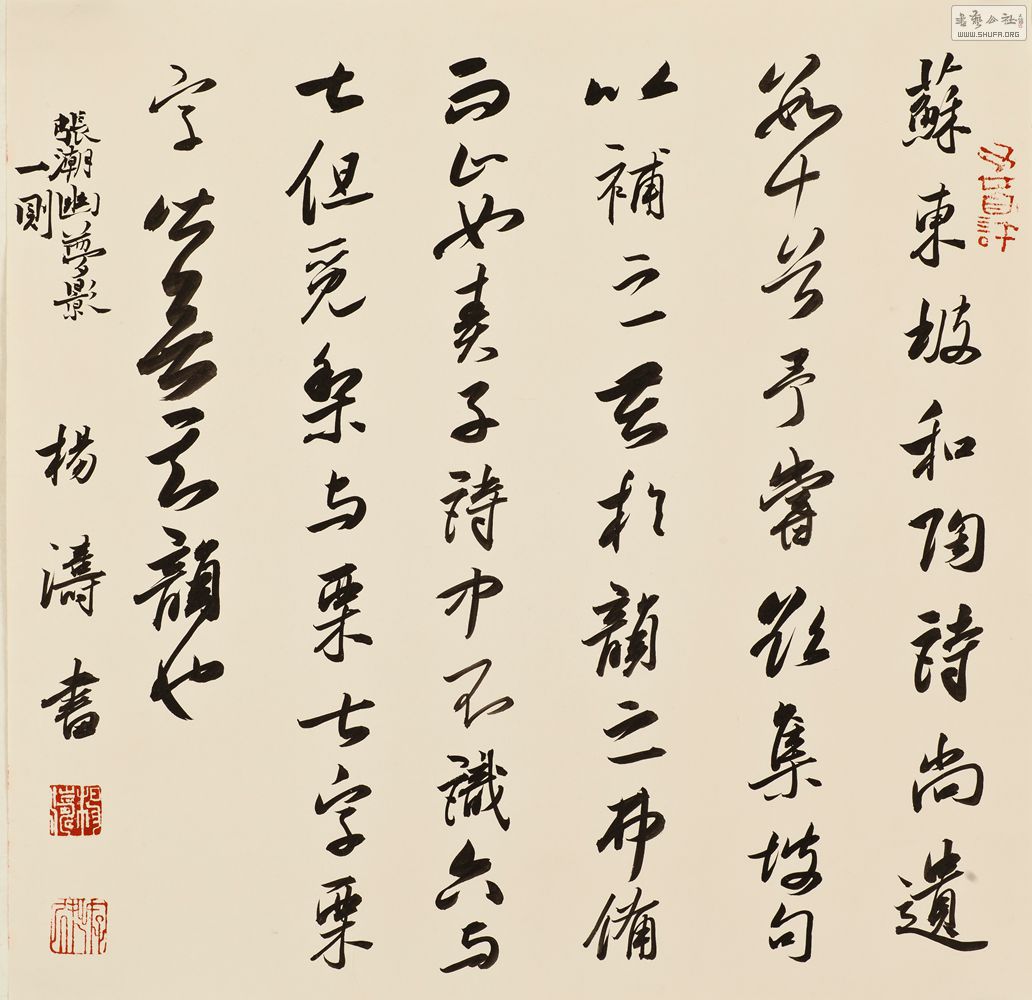 蘇東坡和陶詩尚遺
數十首予嘗欲集坡句
以補之苦於韻之弗備
而止如責子詩中不識六與
七但覓梨與栗七字栗
字皆無其韻也
張潮幽夢影
一則
楊濤書
書藝公社
WWW.SHUFA.ORG